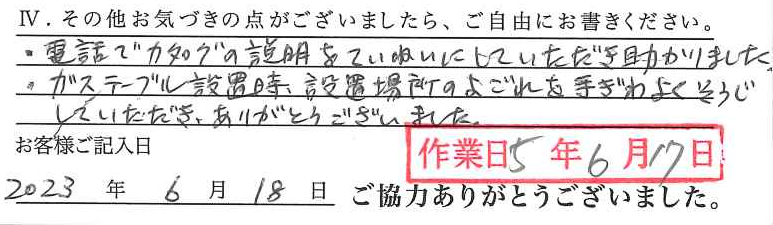 Ⅳ．その他お気づきの点がございましたら、ご自由にお書きください。
・電話でカタログの説明をていねいにしていただき助かりました。
・ガステーブル設置時、設置場所のよごれを手ぎわよくそうじ
していただき、ありがとうございました。
お客様ご記入日
作業日5年6月17日
2023年6月18日 ご協力ありがとうございました。